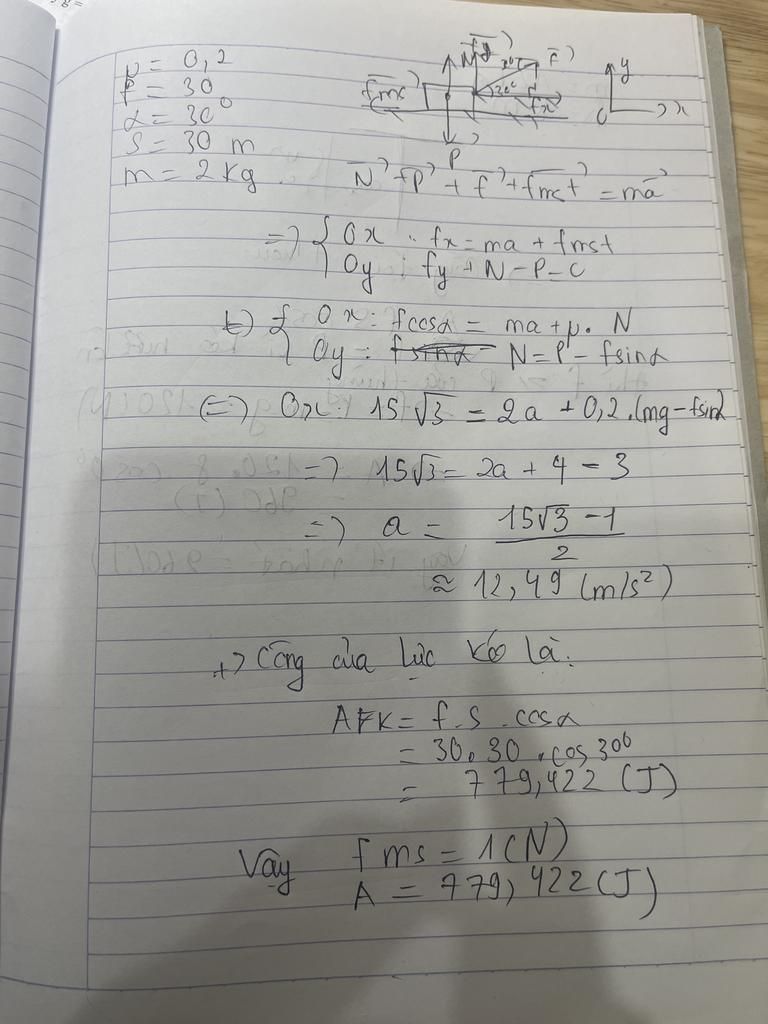 μ = 0,2
f = 30
α = 30°
S = 30 m
m = 2 kg
N
fy
30°
F
fms
30°
fx
P
y
O
x
N + P + f + fmst = ma
=> { Ox : fx = ma + fmst
Oy : fy + N - P = 0
{ Ox : fcosα = ma + μ. N
Oy : fsinα N = P - fsinα
(=) Ox : 15√3 = 2a + 0,2.(mg - fsinα
=> 15√3 = 2a + 4 - 3
=> a = (15√3 - 1)/2
≈ 12,49 (m/s²)
+> Công của lực kéo là:
AFK = f.S.cosα
= 30.30.cos 30°
= 779,422 (J)
Vậy fms = 1 (N)
A = 779,422 (J)